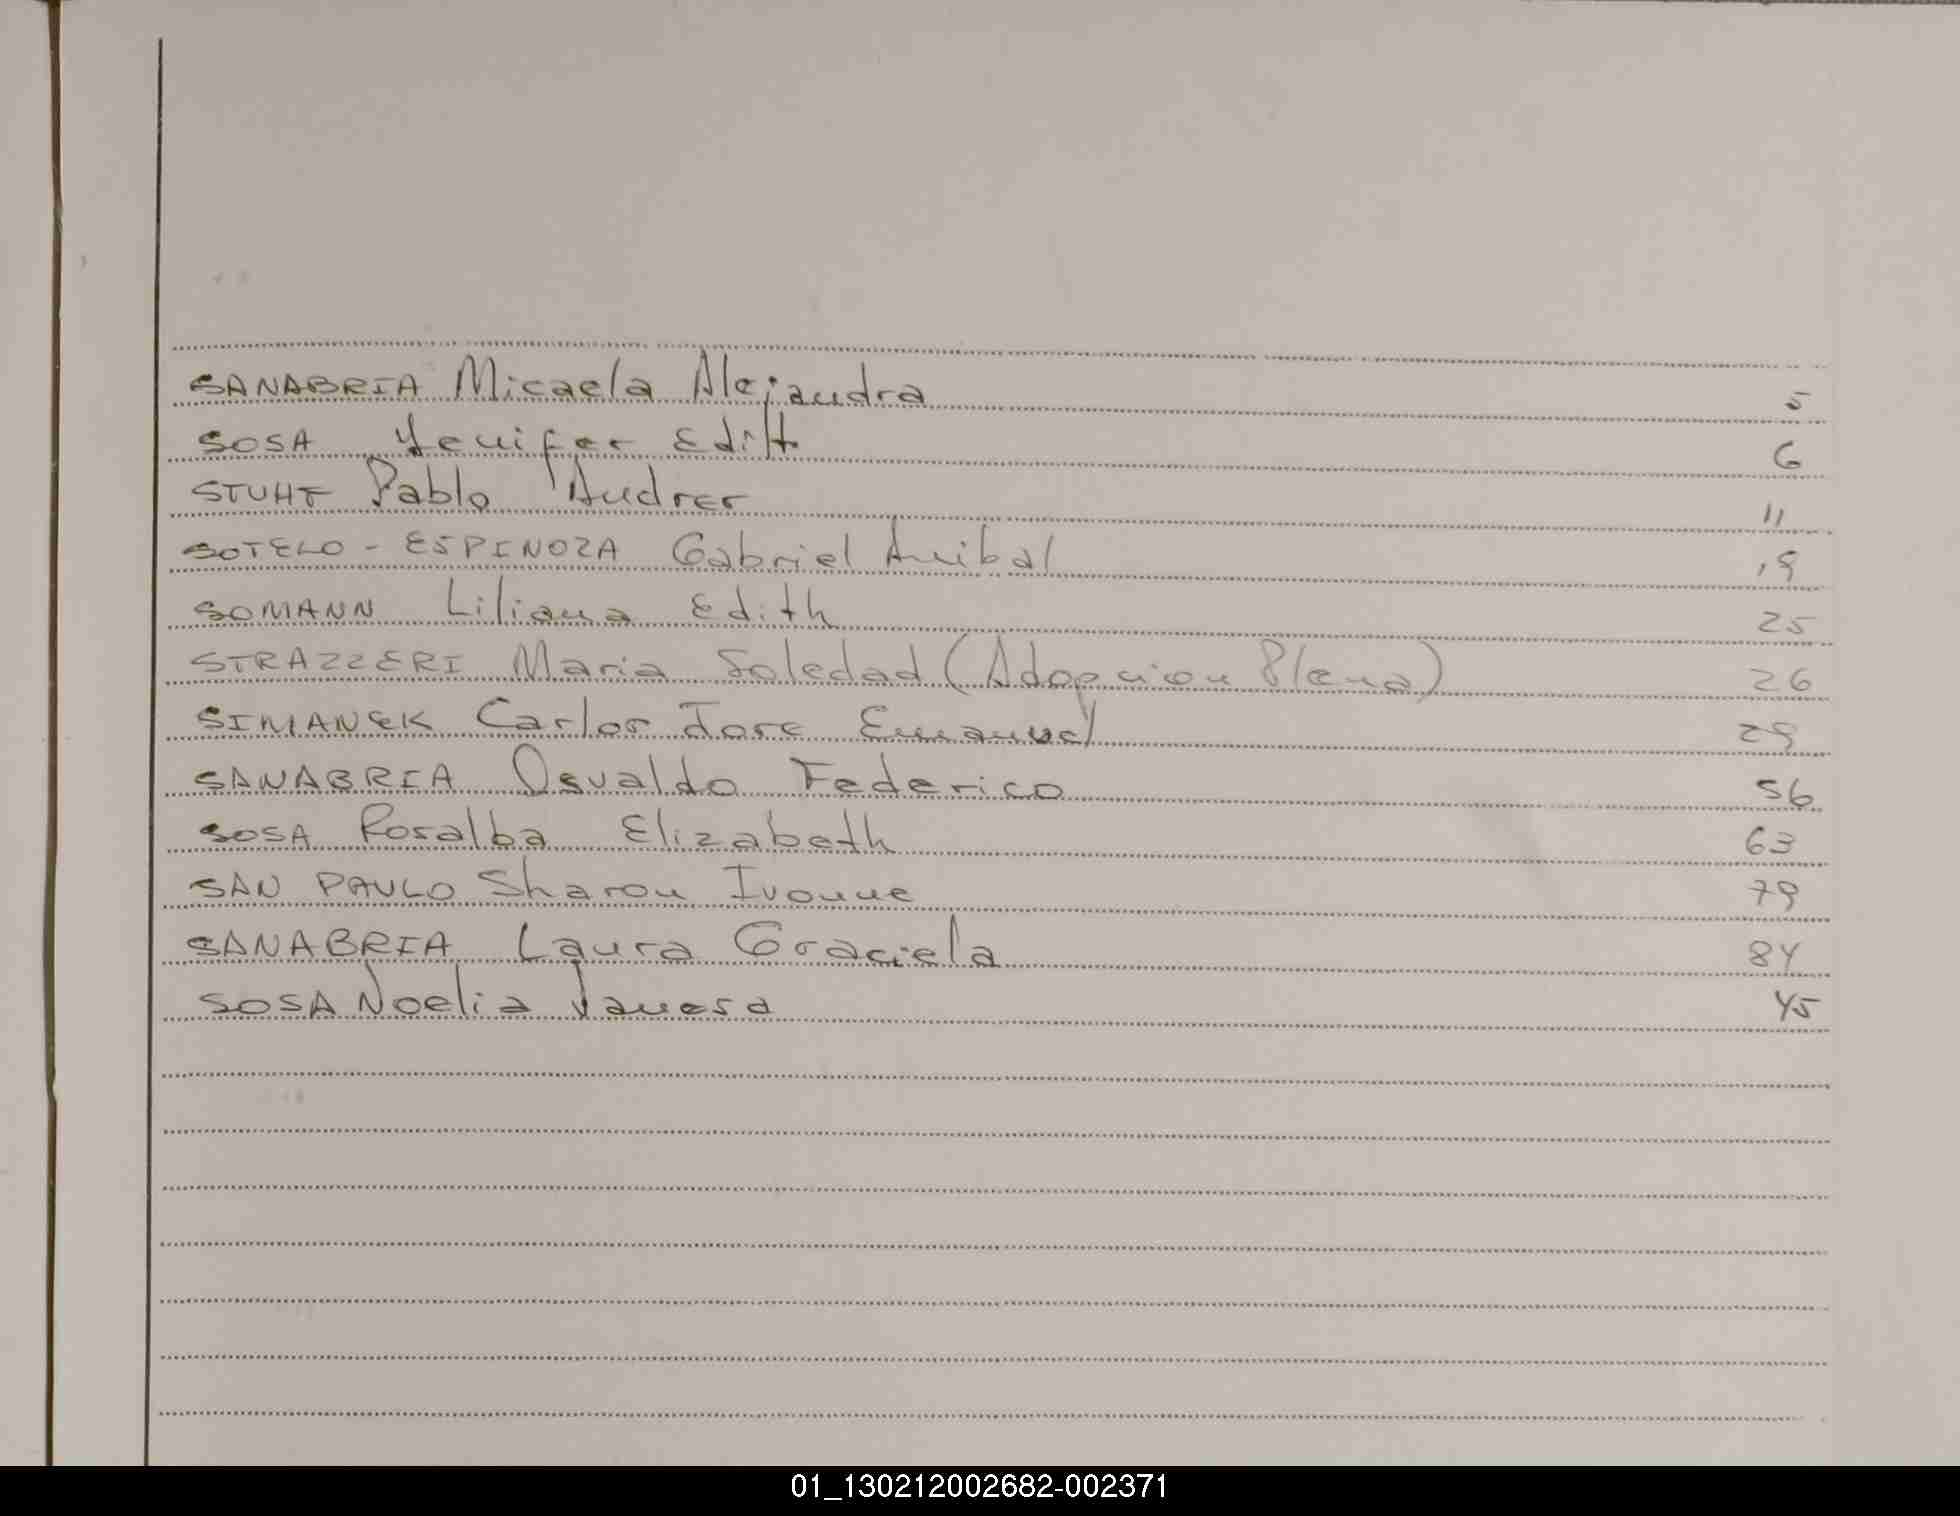 SANABRIA Micaela Alejandra 5
SOSA Yenifer Edith 6
STUHT Pablo Andres 11
SOTELO - ESPINOZA Gabriel Anibal 19
SOMANN Liliana Edith 25
STRAZZERI Maria Soledad (Adopcion Plena) 26
SIMANEK Carlos Jose Emanuel 29
SANABRIA Osvaldo Federico 56
SOSA Rosalba Elizabeth 63
SAN PAULO Sharon Ivonne 79
SANABRIA Laura Graciela 84
SOSA Noelia Vanesa 45
01_130212002682-002371